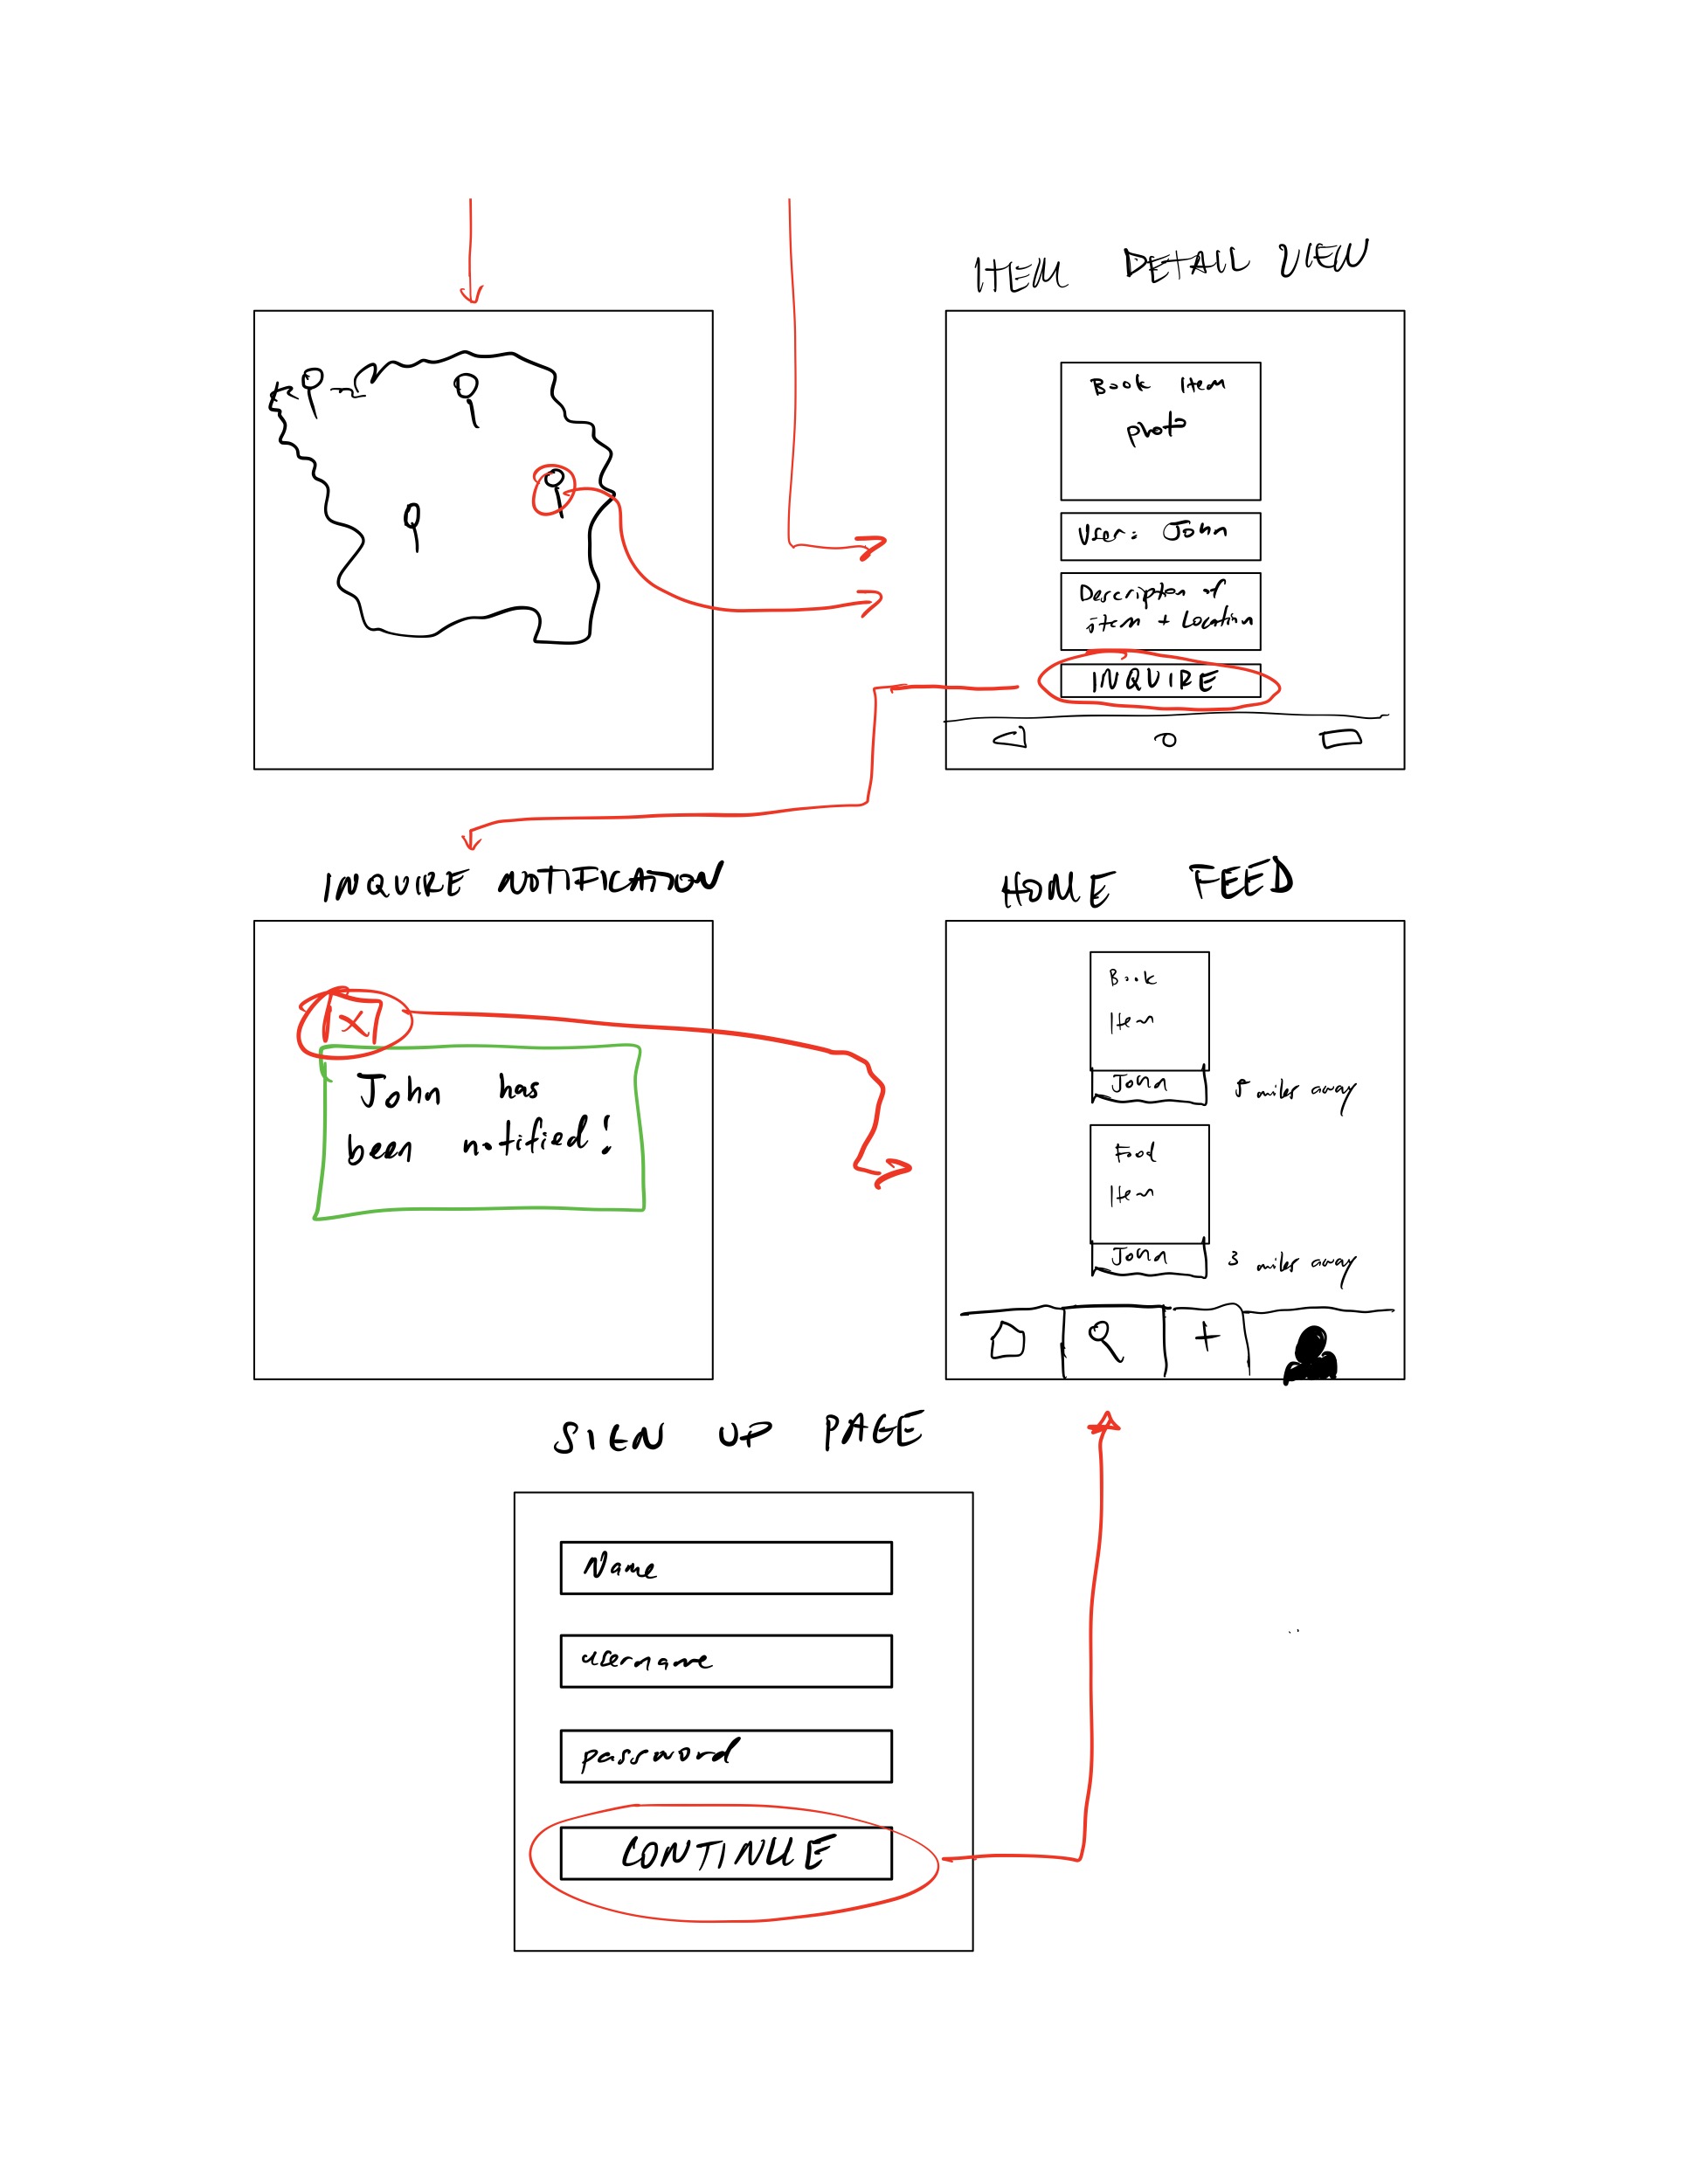 ITEM DETAIL VIEW
Book Item
photo
User: John
Description of
item + Location
INQUIRE
INQUIRE NOTIFICATION
X
John has
been notified!
HOME FEED
Book
Item
John
5 miles away
Food
Item
John
3 miles away
+
SIGN UP PAGE
Name
username
password
CONTINUE